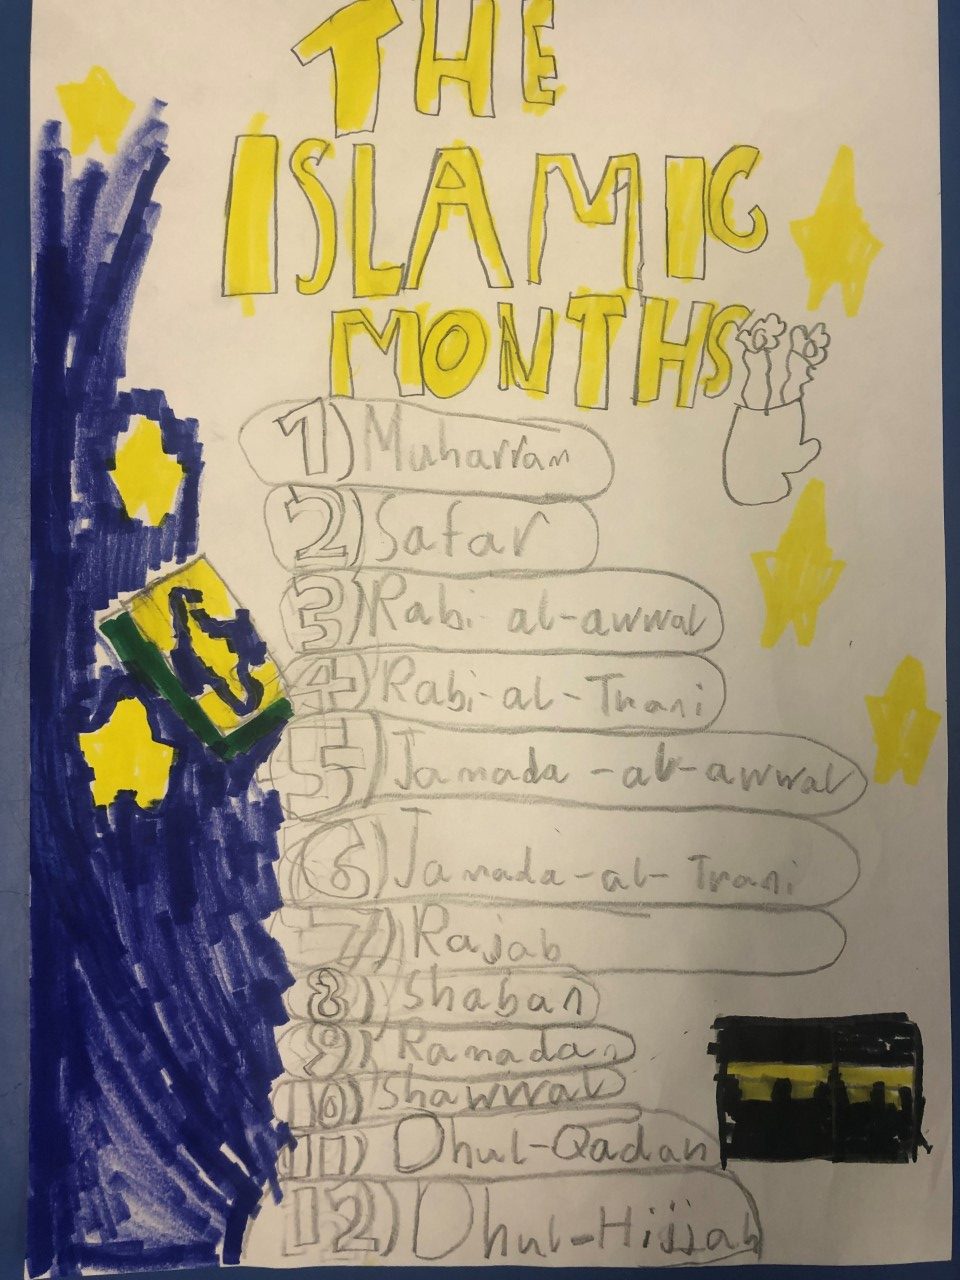 THE
ISLAMIC
MONTHS
1) Muharram
2) Safar
3) Rabi al-awwal
4) Rabi-al-Thani
5) Jamada-al-awwal
6) Jamada-al-Thani
7) Rajab
8) Shaban
9) Ramadan
10) Shawwal
11) Dhul-Qadah
12) Dhul-Hijjah